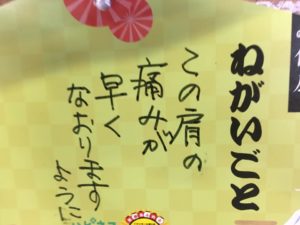 ねがいごと
この肩の
痛みが
早く
なおります
ように